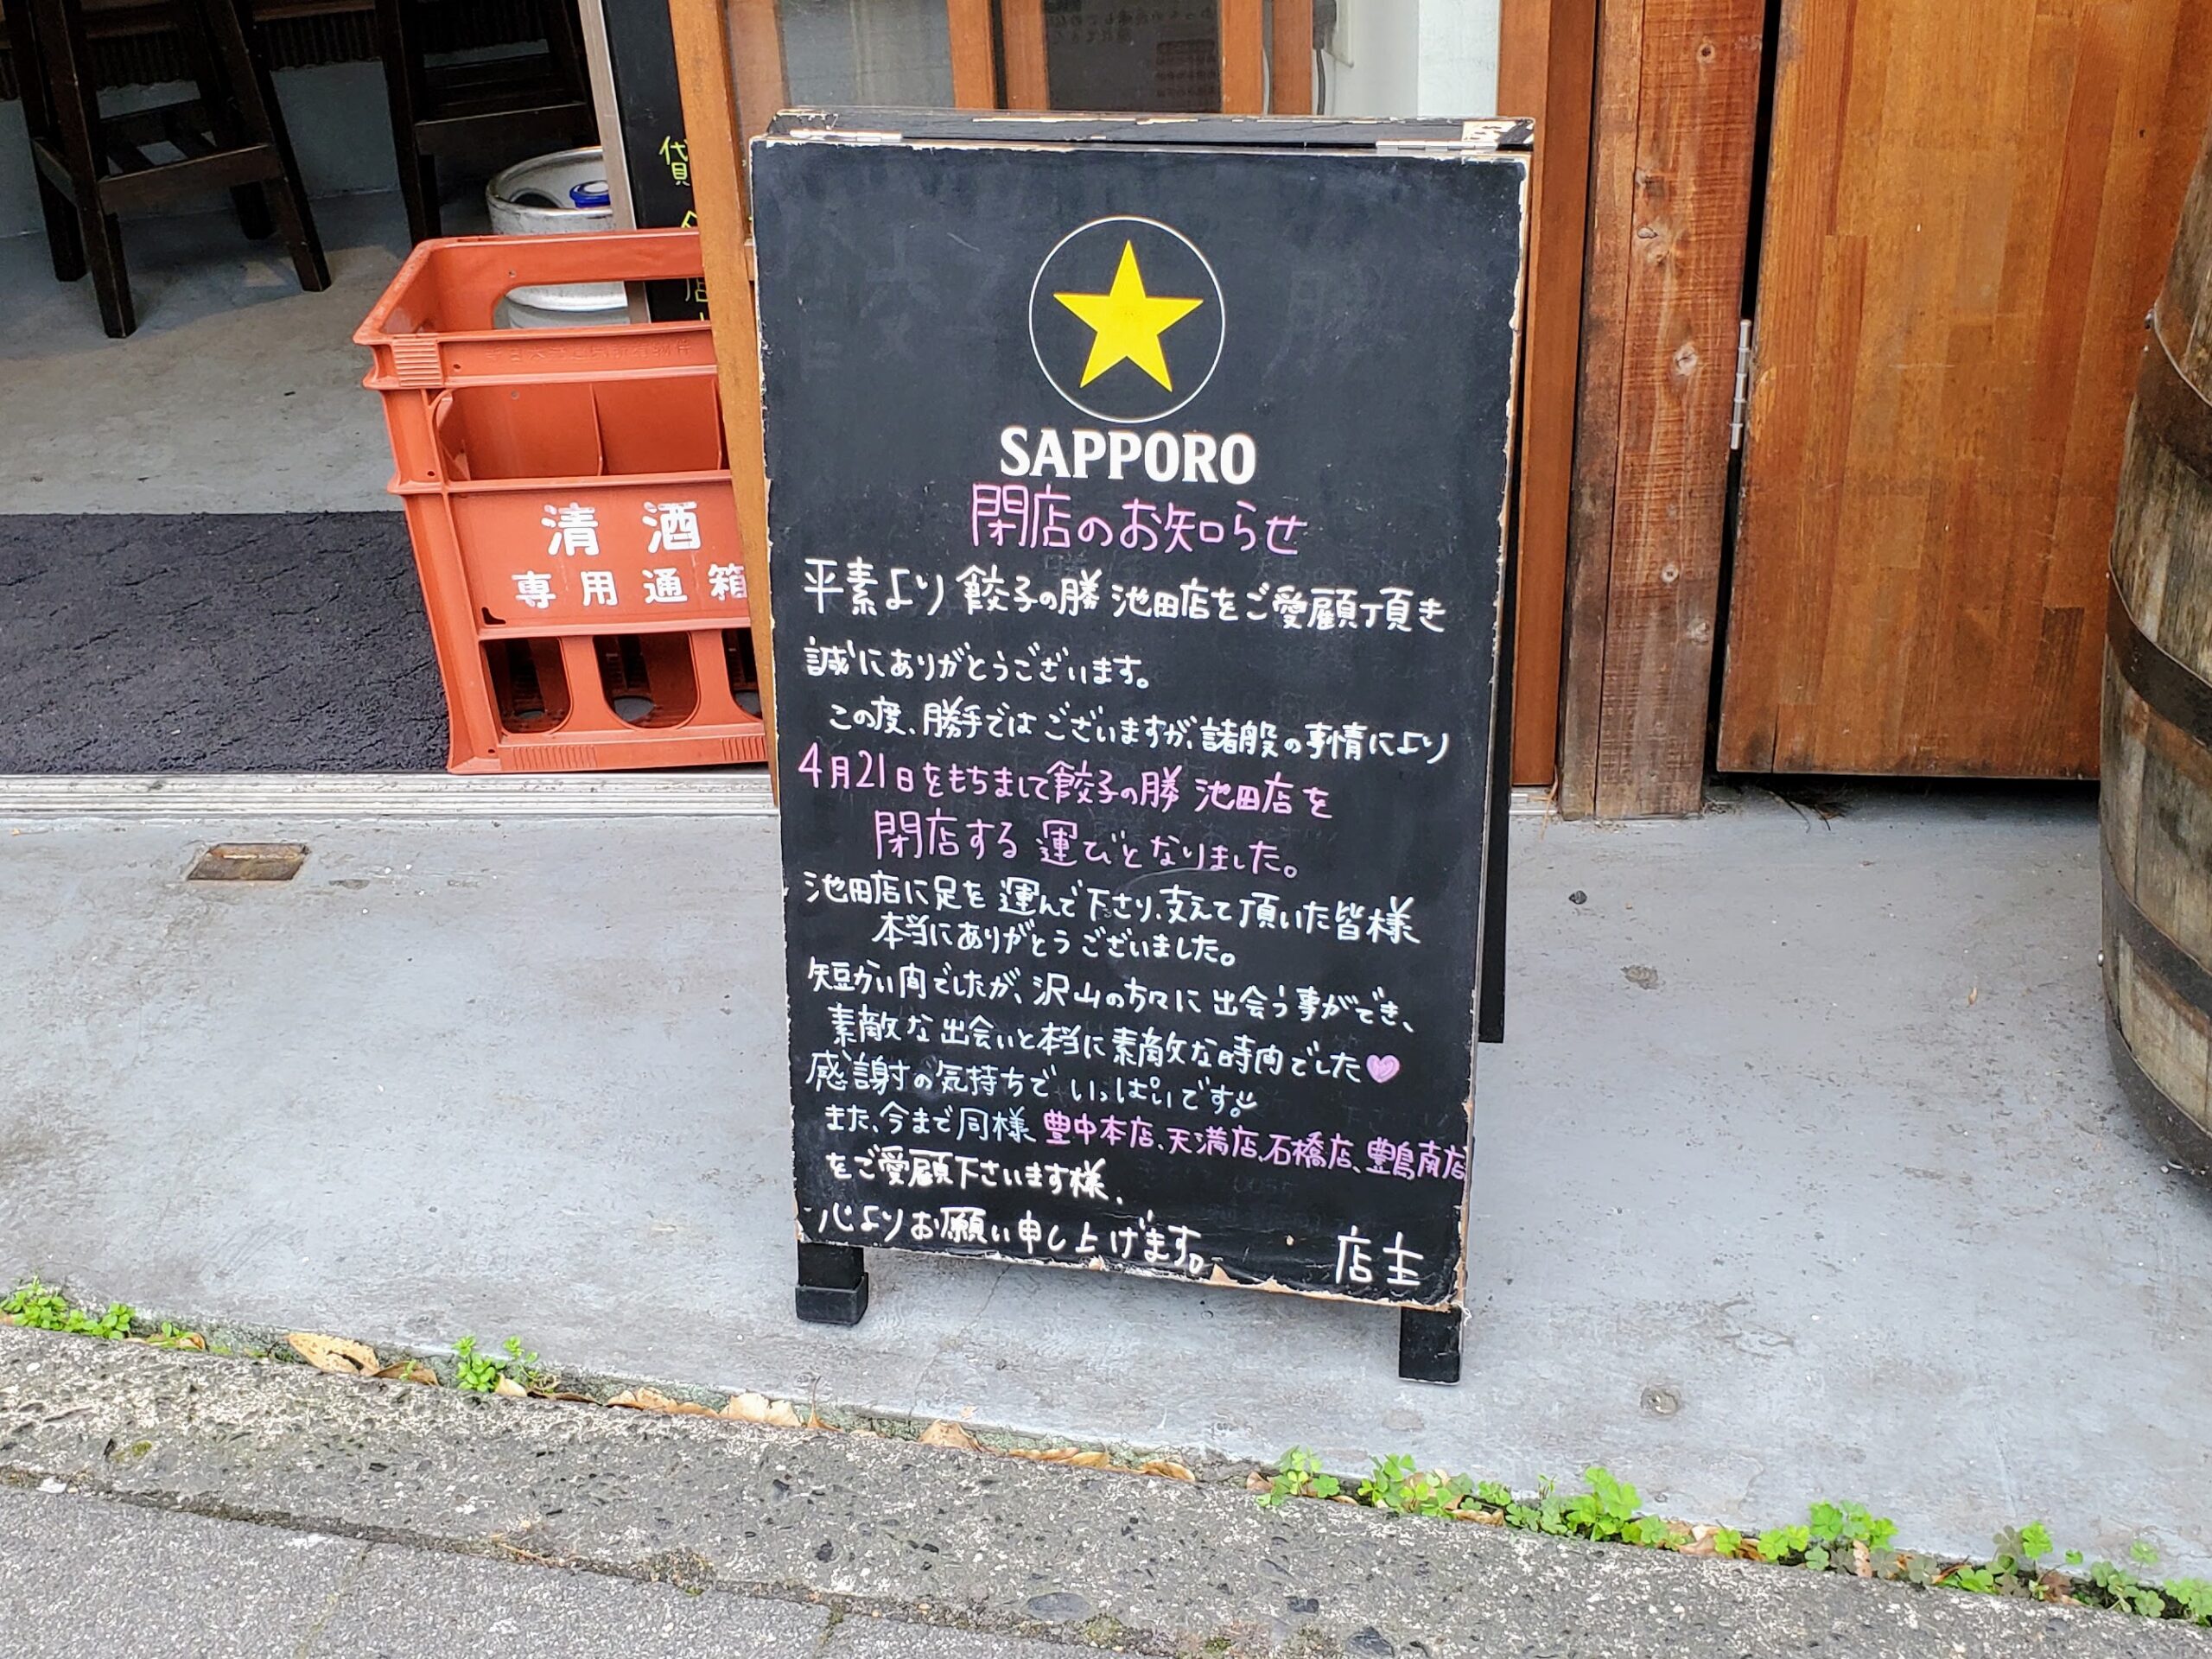 SAPPORO
閉店のお知らせ
平素より餃子の勝 池田店をご愛顧頂き
誠にありがとうございます。
この度、勝手ではございますが、諸般の事情により
4月21日をもちまして餃子の勝 池田店を
閉店する運びとなりました。
池田店に足を運んで下さり、支えて頂いた皆様
本当にありがとうございました。
短かい間でしたが、沢山の方々に出会う事ができ、
素敵な出会いと本当に素敵な時間でした
感謝の気持ちでいっぱいです。
また、今まで同様、豊中本店、天満店、石橋店、豊島南店
をご愛顧下さいます様、
心よりお願い申し上げます。
店主
清酒
専用通箱
貸
店